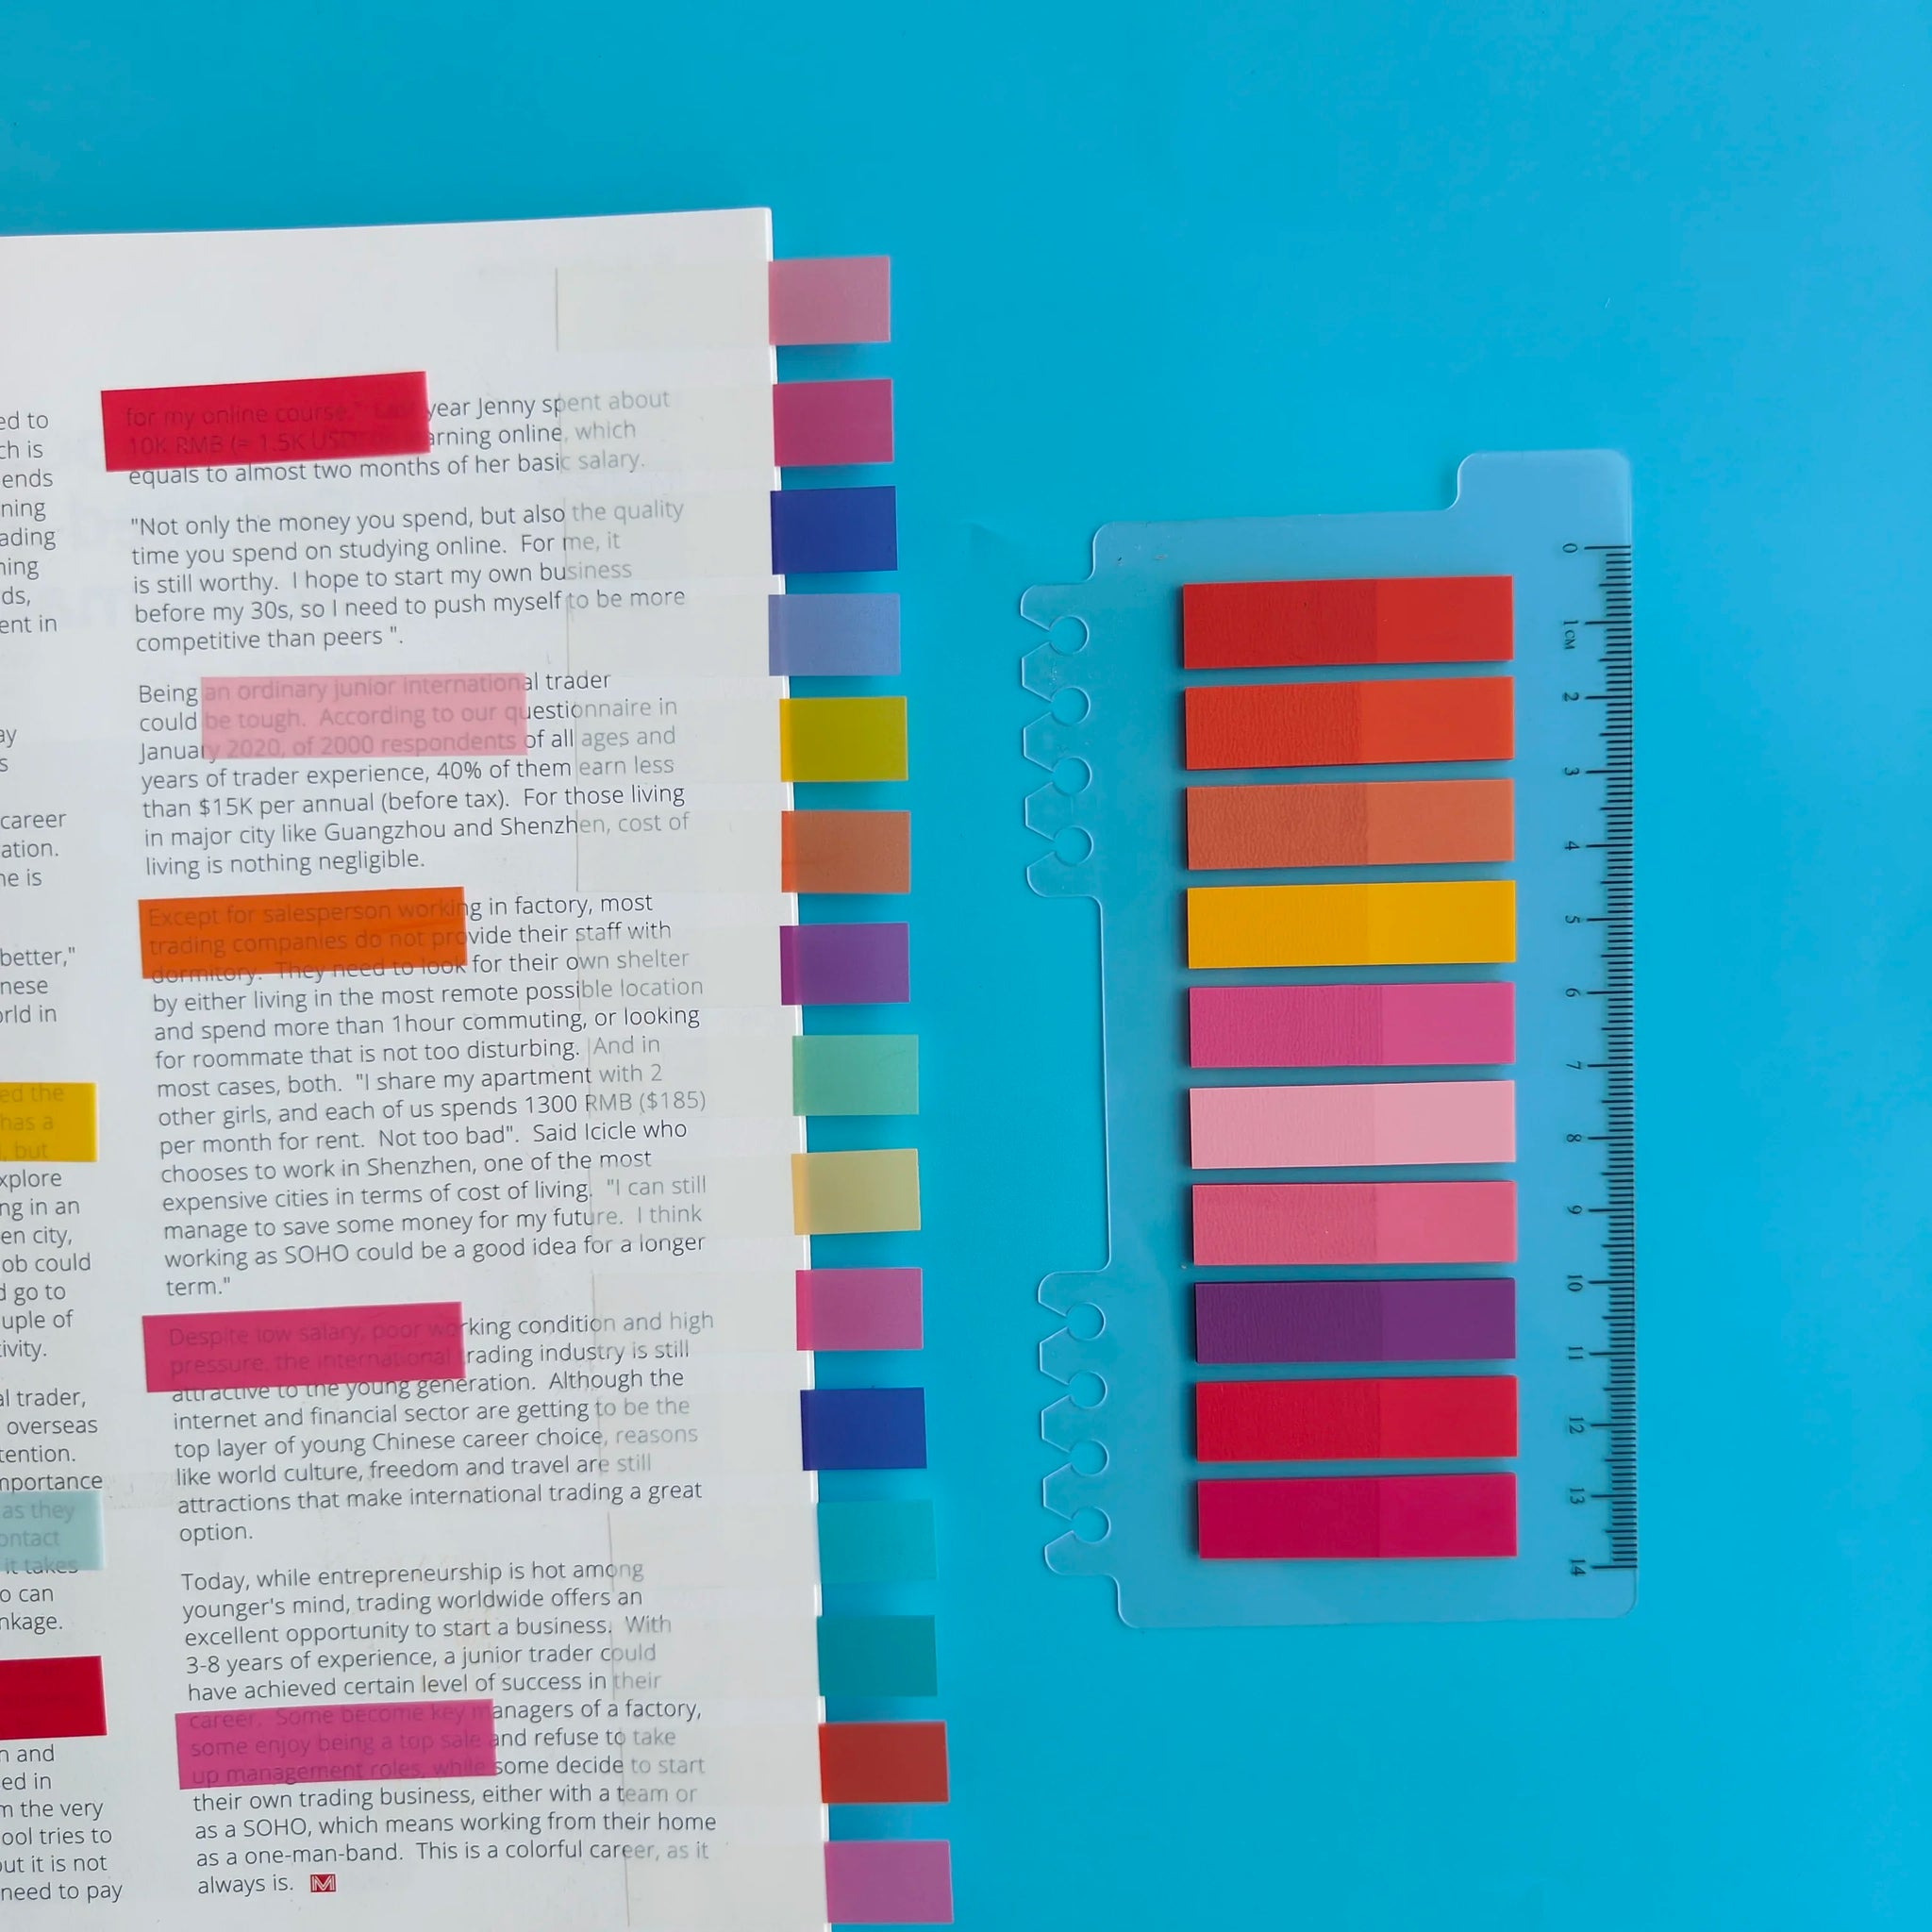 ed to
ch is
ends
ning
ading
ning
ds,
ent in
ay
s
career
ation.
ne is
better,"
nese
orld in
ed the
has a
, but
xplore
ng in an
en city,
ob could
d go to
uple of
tivity.
al trader,
overseas
tention.
mportance
as they
ontact
it takes
o can
nkage.
n and
ed in
m the very
ool tries to
out it is not
need to pay
for my online course." Last year Jenny spent about
10K RMB (= 1.5K USD) arning online, which
equals to almost two months of her basic salary.
"Not only the money you spend, but also the quality
time you spend on studying online. For me, it
is still worthy. I hope to start my own business
before my 30s, so I need to push myself to be more
competitive than peers ".
Being an ordinary junior international trader
could be tough. According to our questionnaire in
January 2020, of 2000 respondents of all ages and
years of trader experience, 40% of them earn less
than $15K per annual (before tax). For those living
in major city like Guangzhou and Shenzhen, cost of
living is nothing negligible.
Except for salesperson working in factory, most
trading companies do not provide their staff with
dormitory. They need to look for their own shelter
by either living in the most remote possible location
and spend more than 1hour commuting, or looking
for roommate that is not too disturbing. And in
most cases, both. "I share my apartment with 2
other girls, and each of us spends 1300 RMB ($185)
per month for rent. Not too bad". Said Icicle who
chooses to work in Shenzhen, one of the most
expensive cities in terms of cost of living. "I can still
manage to save some money for my future. I think
working as SOHO could be a good idea for a longer
term."
Despite low salary, poor working condition and high
pressure, the international trading industry is still
attractive to the young generation. Although the
internet and financial sector are getting to be the
top layer of young Chinese career choice, reasons
like world culture, freedom and travel are still
attractions that make international trading a great
option.
Today, while entrepreneurship is hot among
younger's mind, trading worldwide offers an
excellent opportunity to start a business. With
3-8 years of experience, a junior trader could
have achieved certain level of success in their
career. Some become key managers of a factory,
some enjoy being a top sale and refuse to take
up management roles, while some decide to start
their own trading business, either with a team or
as a SOHO, which means working from their home
as a one-man-band. This is a colorful career, as it
always is. M
0
1CM
2
3
4
5
6
7
8
9
10
11
12
13
14